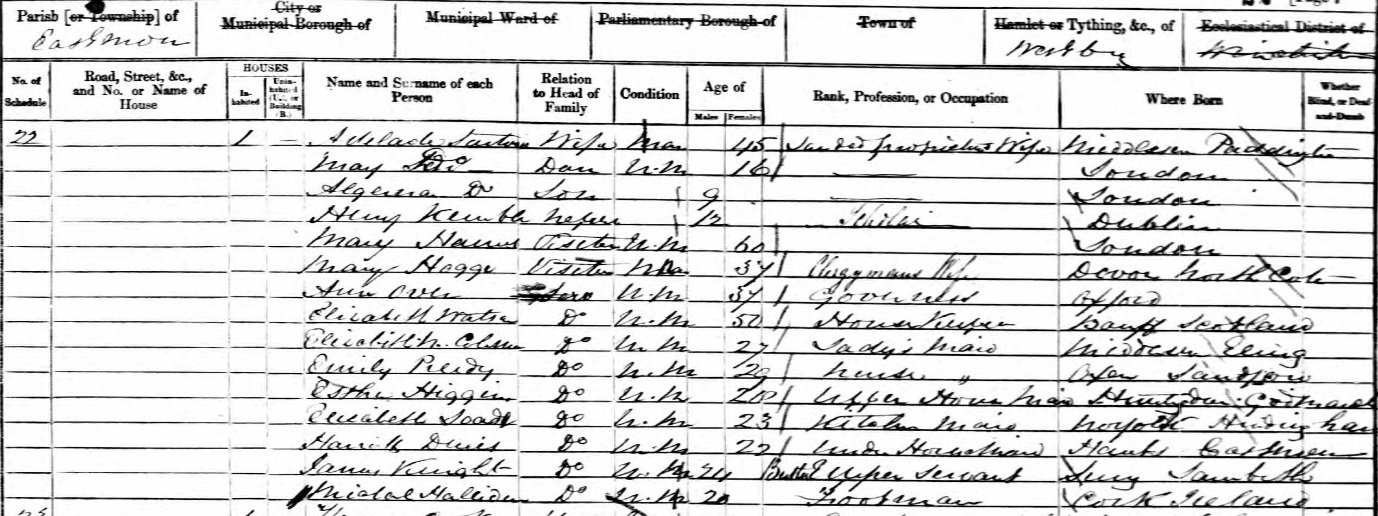 Parish [or Township] of City or Municipal Borough of Municipal Ward of Parliamentary Borough of Town of Hamlet or Tything, &c., of Ecclesiastical District of
Eastmeon Westbury
No. of Schedule Road, Street, &c., and No. or Name of House HOUSES Inhabited Uninhabited (U.), or Building (B.) Name and Surname of each Person Relation to Head of Family Condition Age of Males Females Rank, Profession, or Occupation Where Born Whether Blind, or Deaf-and-Dumb
22 1 – Adelade Wife Mar 45 Landed proprietors Wife Middlesex Paddington
May Do Dau U.M 16 — London
Algernon Do Son 9 — London
Henry Kemble Nephew 12 Scholar Dublin
Mary Visitor U.M 60 London
Mary Hogge Visitor Mar 37 Clergymans Wife Devon North
Ann Over U.M 37 Governess Oxford
Elizabeth Watson Do U.M 50 House Keeper Banff Scotland
Elizabeth Do U.M 27 Lady's Maid Middlesex Eling
Emily Do U.M 29 " Oxon Sandford
Esther Higgin Do U.M 20 Upper House Maid
Elizabeth Do U.M 23 Kitchen Maid Norfolk
Do U.M 22 Under Housemaid Hants Eastmeon
James Knight Do U.M 24 Butler Upper Servant Surry Lambeth
Do U.M 20 Footman Cork Ireland